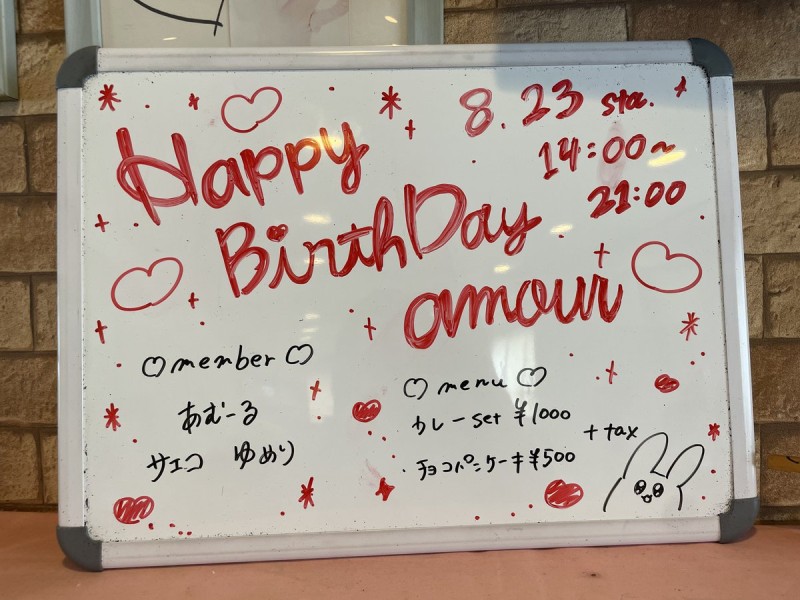 Happy
8.23 sta.
14:00~
21:00
BirthDay
amour
♡member♡
あむーる
サエコ ゆめり
♡menu♡
カレーset ¥1000
・チョコパニケーキ¥500
+tax